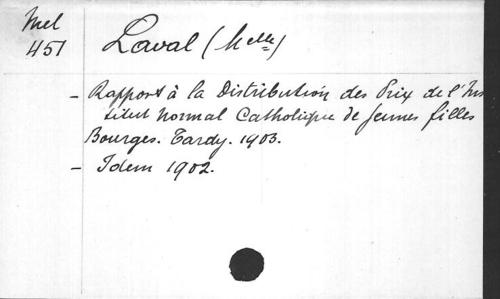 Mel
451
Laval (Melle)
- Rapport à la Distribution des Prix de l'Ins
titut Normal Catholique de jeunes filles
Bourges. Tardy. 1903.
- Idem 1902.